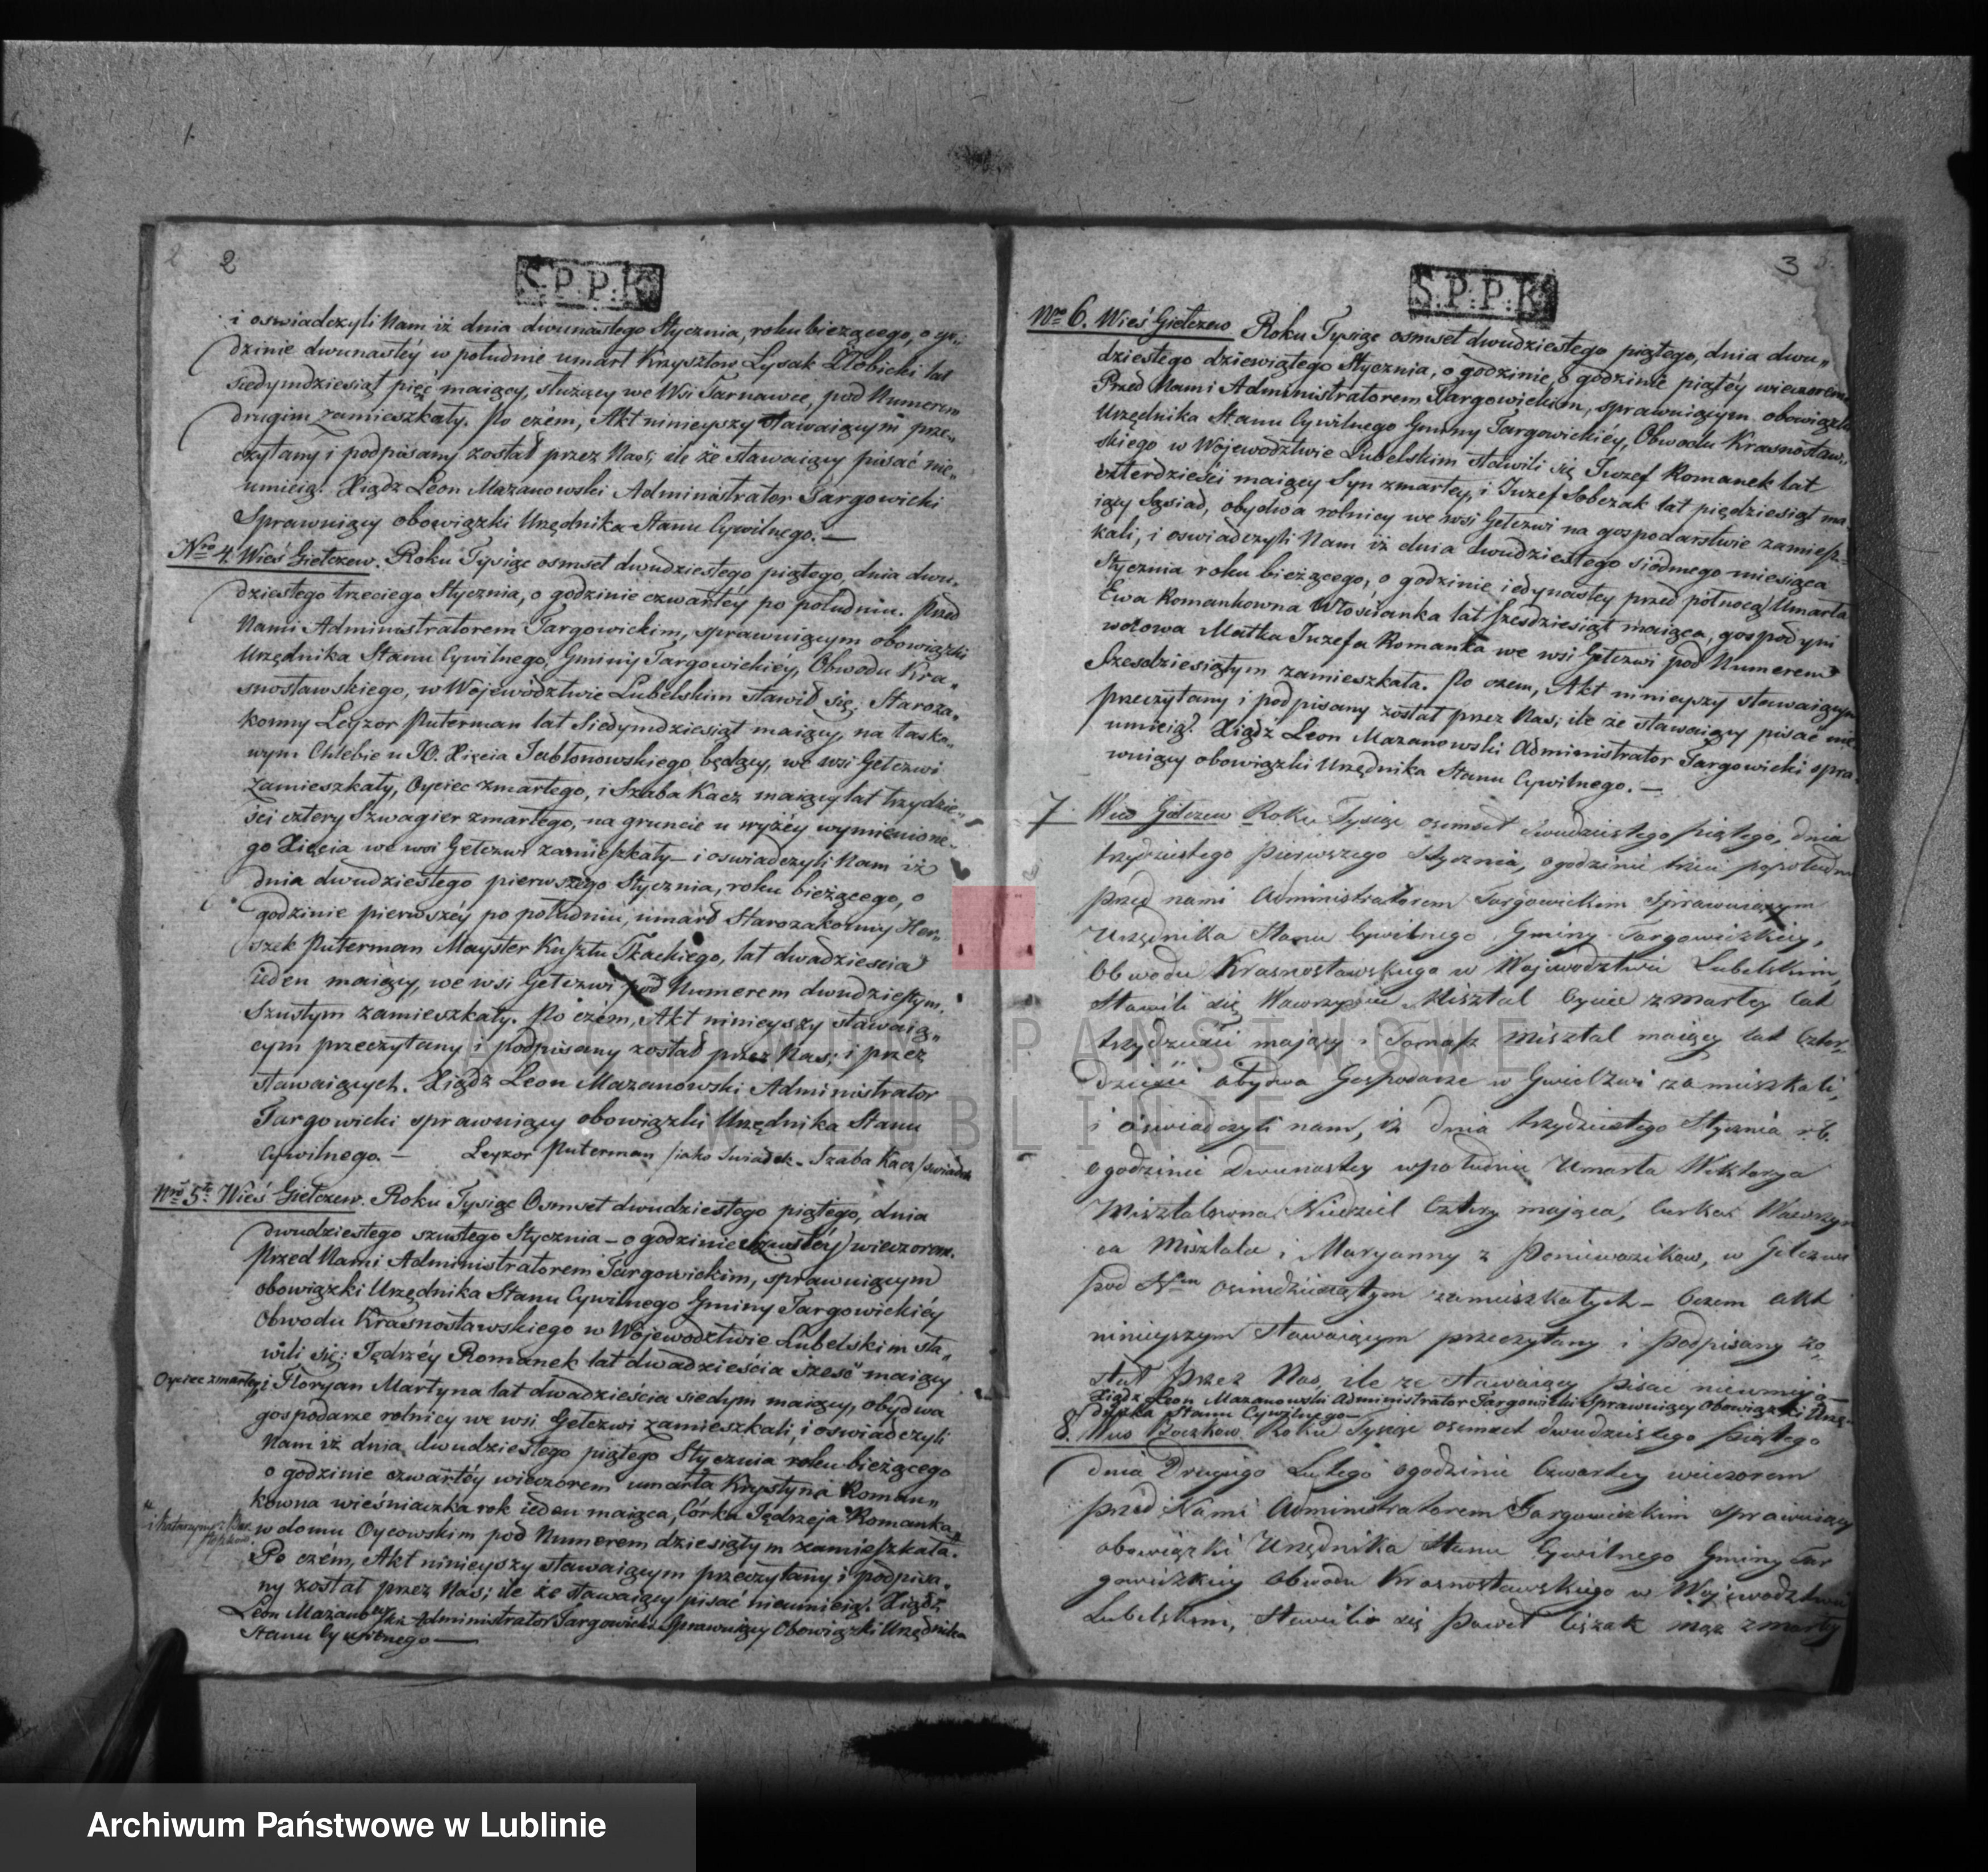 2 2
S.P.P.K
i oswiadczyli Nam iż dnia dwunastego Stycznia, roku bieżącego, o go„
dzinie dwunastéy w południe umarł Krzysztow Lysak Złobicki lat
siedymdziesiąt pięć maiący, służący we Wsi Tarnawce, pod Numerem
drugim zamieszkały. Po czém, Akt ninieyszy stawaiącym prze„
czytany i podpisany został przez Nas; ile że stawaiący pisać nie„
umieią. Xiądz Leon Mazanowski Administrator Targowicki
Sprawuiący obowiązki Urzędnika Stanu Cywilnego. —
Nro 4. Wieś Giełczew. Roku Tysiąc osmset dwudziestego piątego, dnia dwu„
dziestego trzeciego Stycznia, o godzinie czwartéy po południu. Przed
Nami Administratorem Targowickim, sprawuiącym obowiązki
Urzędnika Stanu Cywilnego, Gminy Targowickiéy, Obwodu Kra„
snostawskiego, w Województwie Lubelskim stawił się; Staroza„
konny Leyzor Puterman lat Siedymdziesiąt maiący, na łasko„
wym Chlebie u JO. Xięcia Jabłonowskiego będący, we wsi Gełczwi
zamieszkały, Oyciec zmarłego, i Szaba Kacz maiący lat trzydzie„
ści cztery Szwagier zmarłego, na gruncie u wyżéy wymienione„
go Xięcia we wsi Gełczwi zamieszkały — i oswiadczyli Nam iż
dnia dwudziestego pierwszego Stycznia, roku bieżącego, o
godzinie pierwszéy po południu, umarł Starozakonny Her„
szek Puterman Mayster Kusztu Tkackiego, lat dwadziescia
ieden maiący, we wsi Gełczwi pod Numerem dwudziestym
Szustym zamieszkały. Po czém, Akt ninieyszy stawaią„
cym przeczytany i podpisany został przez Nas; i przez
stawaiących. Xiądz Leon Mazanowski Administrator
Targowicki sprawuiący obowiązki Urzędnika Stanu
Cywilnego. — Leyzor Puterman /iako Swiadek. Szaba Kacz /swiadek
Nro 5te Wieś Giełczew. Roku Tysiąc Osmset dwudziestego piątego, dnia
dwudziestego szustego Stycznia — o godzinie (szustéy) wieczorem.
Przed Nami Administratorem Targowickim, sprawuiącym
obowiązki Urzędnika Stanu Cywilnego Gminy Targowickiéy
Obwodu Krasnostawskiego w Województwie Lubelskim sta„
wili się; Jędrzéy Romanek lat dwadzieścia sześć maiący
Oyciec zmarłey i Floryan Martyna lat dwadzieścia siedym maiący, obydwa
gospodarze rolnicy we wsi Gełczwi zamieszkali, i oswiadczyli
Nam iż dnia dwudziestego piątego Stycznia roku bieżącego
o godzinie czwartéy wieczorem umarła Krystyna Roman„
kowna wieśniaczka rok ieden maiąca, Córka Jędrzeja Romanka
i Katarzyny z
w domu Oycowskim pod Numerem dziesiątym zamieszkała.
Po czém, Akt ninieyszy stawaiącym przeczytany i podpisa„
ny został przez Nas; ile że stawaiący pisać nieumieią. Xiądz
Leon Mazanowski Administrator Targowicki Sprawuiący Obowiązki Urzędnika
Stanu Cywilnego —
3
S.P.P.K
Nro 6. Wieś Giełczew Roku Tysiąc osmset dwudziestego piątego, dnia dwu„
dziestego dziewiątego Stycznia, o godzinie, o godzinie piątéy wieczorem
Przed Nami Administratorem Targowickim, sprawuiącym obowiązki
Urzędnika Stanu Cywilnego Gminy Targowickiéy, Obwodu Krasnostaw„
skiego w Województwie Lubelskim stawili się Iuzef Romanek lat
czterdzieści maiący Syn zmarłey, i Iuzef Sobczak lat pięćdziesiąt ma„
iący Sąsiad, obydwa rolnicy we wsi Gełczwi na gospodarstwie zamiesz„
kali, i oswiadczyli Nam iż dnia dwudziestego siódmego miesiąca
Stycznia roku bieżącego, o godzinie iedynastey przed północą Umarła
Ewa Romankowna Włościanka lat sześdziesiąt maiąca, gospodyni
wdowa Matka Iuzefa Romanka we wsi Gełczwi pod Numerem
Szesdziesiątym zamieszkała. Po czem, Akt ninieyszy stawaiącym
przeczytany i podpisany został przez Nas; ile że stawaiący pisać nie
umieią. Xiądz Leon Mazanowski Administrator Targowicki spra„
wuiący obowiązki Urzędnika Stanu Cywilnego. —
7 Wies Gełczew Roku Tysiąc osemset dwudziestego piątego, dnia
trzydziestego pierwszego Stycznia, o godzinie trzeci popołudniu
przed nami Administratorem Targowickim Sprawuiącym
Urzędnika Stanu Cywilnego Gminy Targowickiey,
Obwodu Krasnostawskiego w Wojewodztwie Lubelskim,
Stawili się Wawrzyniec Misztal Oyciec zmarłey lat
trzydzieści mający i Tomasz Misztal maiący lat Czter„
dzieści obydwa Gospodarze w Gwiełzwi zamieszkali,
i oświadczyli nam, iż dnia trzydziestego Stycznia r.b.
o godzinie Dwunastey w południe Umarła Wiktorya
Misztalowna Niedziel Cztery mająca, Curka Wawrzyń
ca Misztala i Maryanny z Poniewozikow, w Gełczwi
pod Nrm osimdziesiątym zamieszkałych — Czem akt
ninieyszym stawaiącym przeczytany i podpisany zo„
stał przez Nas, ile ze stawaiący pisać nieumieją —
Xiądz Leon Mazanowski Administrator Targowicki Sprawuiący Obowiązki Urzę„
dnika Stanu Cywilnego —
8. Wies Boczkow Roku Tysiąc osemset dwudziestego Piątego
dnia Drugiego Lutego o godzinie Czwartey wieczorem
przed Nami Administratorem Targowickim sprawuiący
obowiązki Urzędnika Stanu Cywilnego Gminy Tar
gowickiey Obwodu Krasnostawskiego w Wojewodztwie
Lubelskim, Stawili się Paweł Ciżak mąż zmarłey
ARCHIWUM PAŃSTWOWE
W LUBLINIE
Archiwum Państwowe w Lublinie